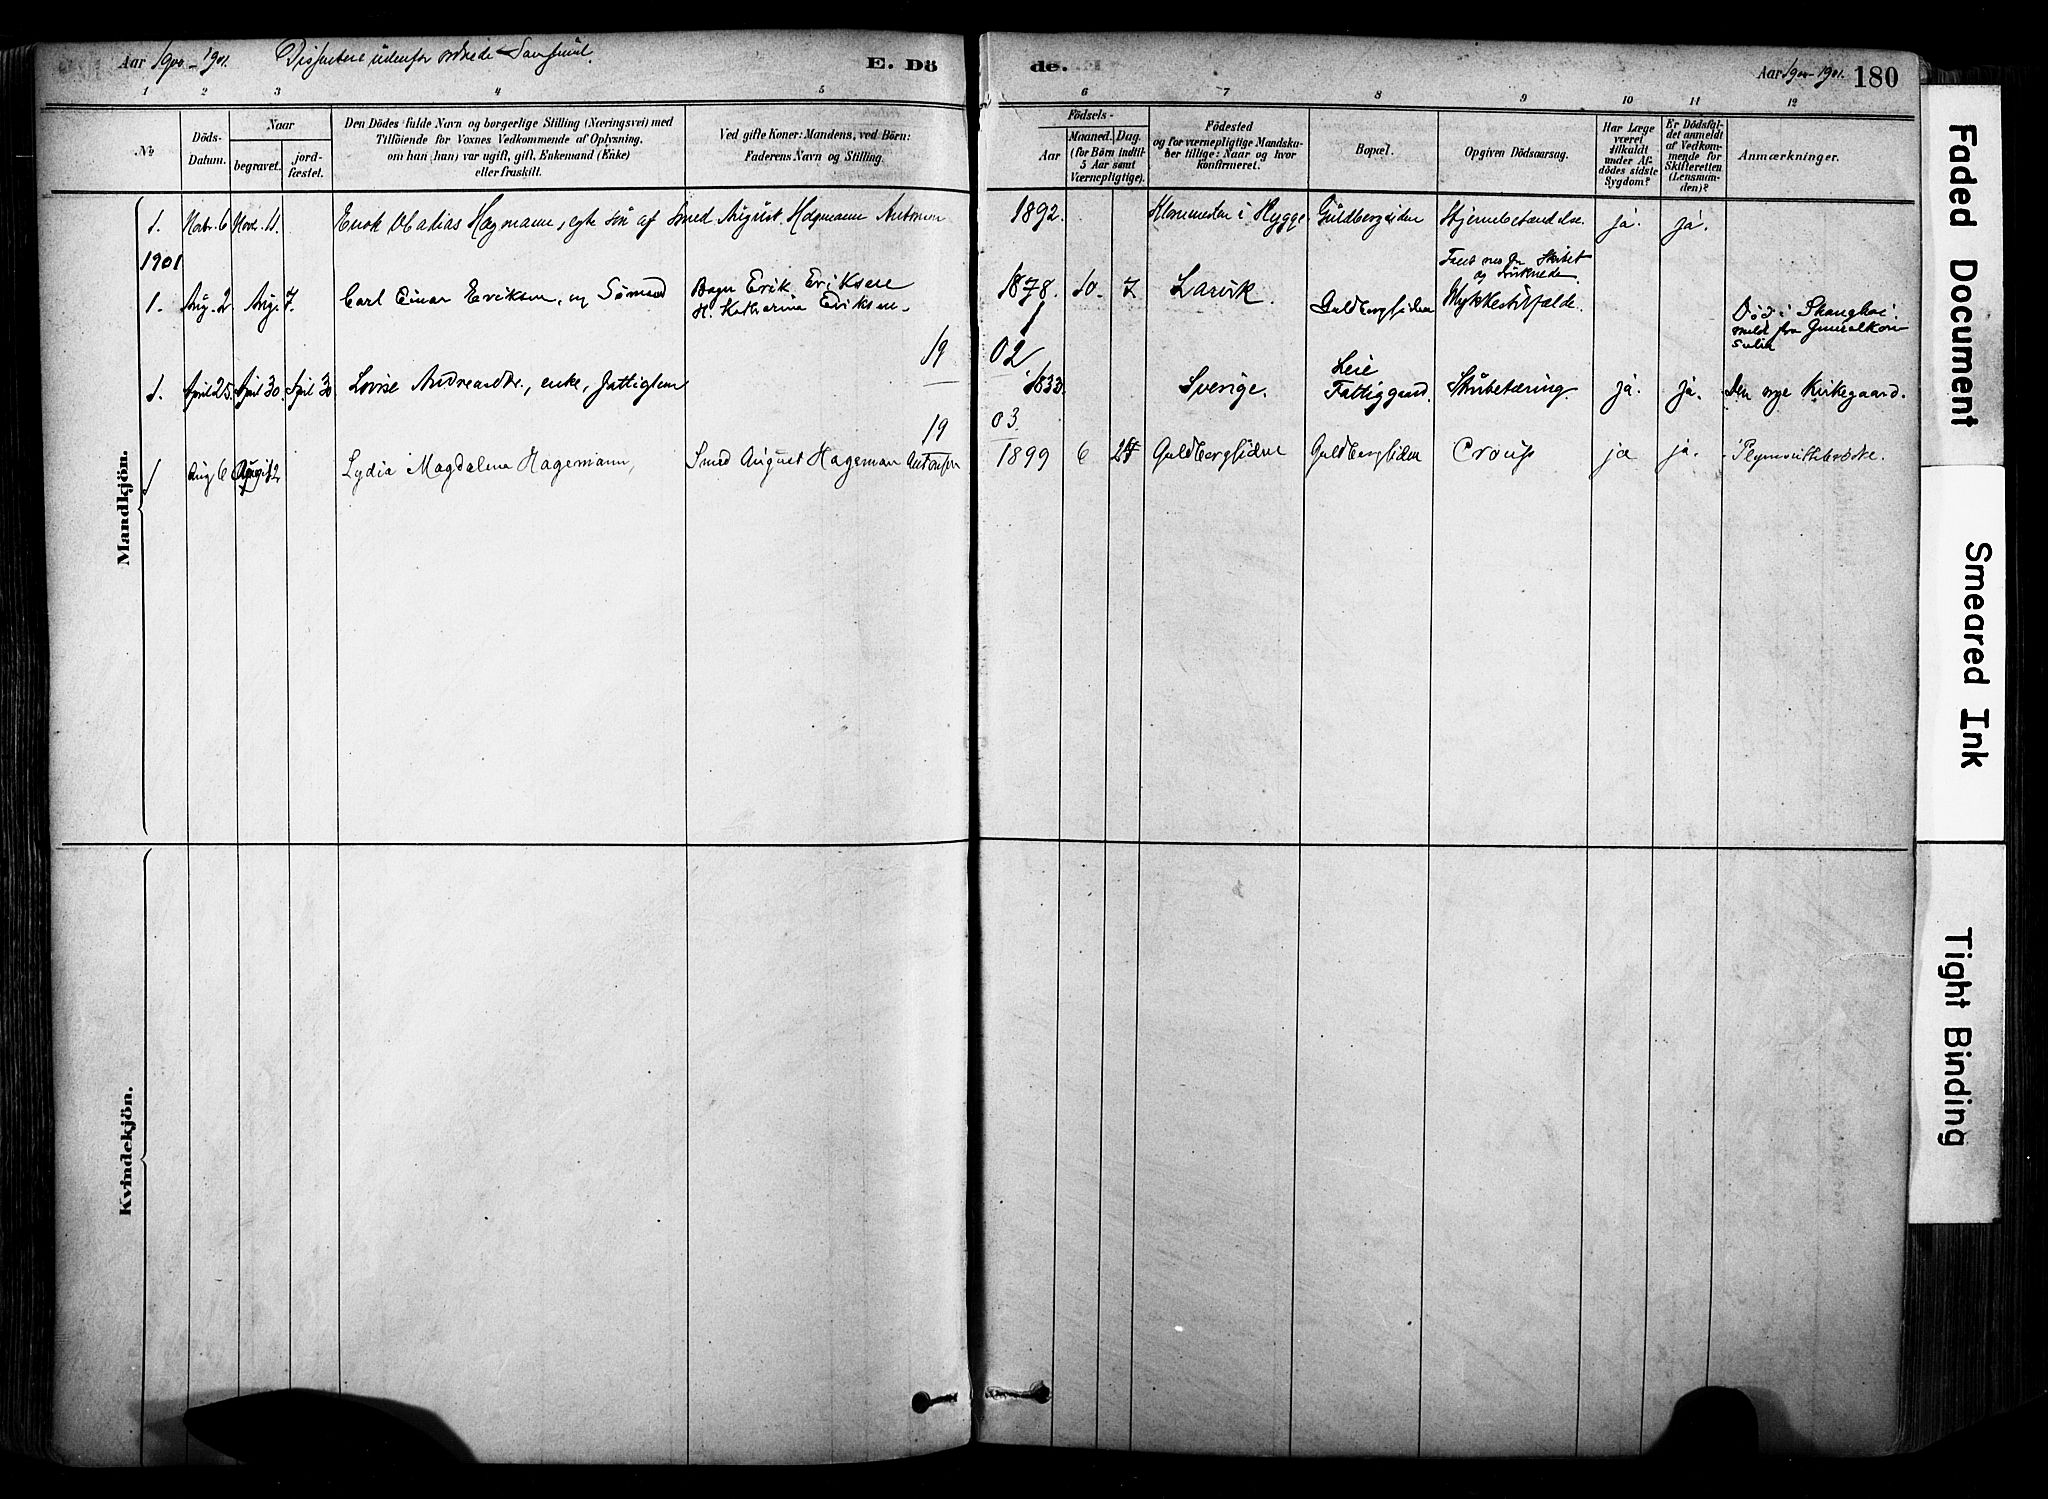 Aar 1900-1901. Dissentere udenfor ordnede Samfund.
E. Dö
de.
Aar 1900-1901. 180
1 2 3 4 5 6 7 8 9 10 11 12
№
Döds-
Datum.
Naar
begravet.
jord-
fæstet.
Den Dödes fulde Navn og borgerlige Stilling (Næringsvei) med
Tilföiende for Voxnes Vedkommende af Oplysning,
om han (hun) var ugift, gift, Enkemand (Enke)
eller fraskilt.
Ved gifte Koner: Mandens, ved Börn:
Faderens Navn og Stilling.
Födsels-
Aar
Maaned.
Dag.
(for Börn indtil
5 Aar samt
Værnepligtige).
Födested
og for værnepligtige Mandska-
ber tillige: Naar og hvor
konfirmeret.
Bopæl.
Opgiven Dödsaarsag.
Har Læge
været
tilkaldt
under Af-
dödes sidste
Sygdom?
Er Dödsfal-
det anmeldt
af Vedkom-
mende for
Skifteretten
(Lensman-
den)?
Anmærkninger.
Mandkjön.
1. Novbr. 6 Novbr. 11. Enok Mathias Hagmann, egte søn af Smed August Hagmann Antonsen 1892. i Rygge Guldbergsiden Hjernebetændelse. ja. ja.
1901
Faldt ned fra Skibet
og druknede
1. Aug. 2 Aug. 7. Carl Einar Eriksen, ug Sømand Bager Erik Eriksen
H. Katharina Eriksen. 1878. 10. 7 Larvik. Guldbergsiden Ulykkestilfælde.
Død i Shanghai.
meldt fra Generalkon
sulen
19 02
1. April 25. April 30. April 30 Lovise Andreasdtr., enke, fattiglem 1833. Sverige. Leie
Fattiggaard. Strubetæring. ja. ja. Den nye Kirkegaard.
19 03.
1 Aug 6 Aug 12 Lydia Magdalena Hagemann, Smed August Hageman Antonsen 1899 6 24 Guldbergsiden Guldbergsiden Croup ja ja. Plymouthbrødre.
Kvindekjön.
Faded Document
Smeared Ink
Tight Binding